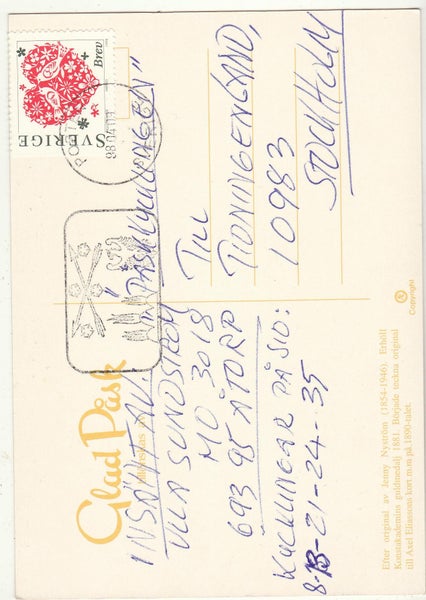 Glad Påsk
INSÄNT AV "PÅSKLYCKLINGEN"
ULLA SUNDSTRÖM
MO 3018
693 95 ÅTORP
KYCKLINGAR PÅ SID:
8-13-21-24-35
TILL
TIDNINGEN LAND,
10983
STOCKHOLM
SVERIGE
Brev
98 04 03
Efter original av Jenny Nyström (1854-1946). Erhöll
Konstakademins guldmedalj 1881. Började teckna original
till Axel Eliassons kort m.m på 1890-talet.
Copyright